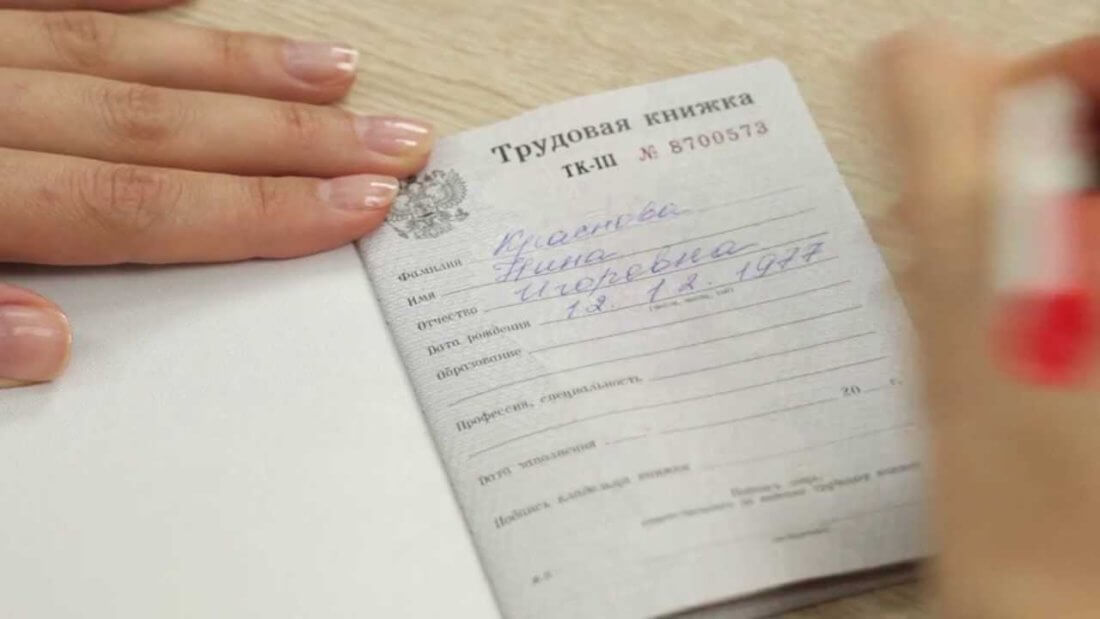 Трудовая книжка
ТК-III № 8700573
Фамилия Краснова
Имя Нина
Отчество Игоревна
Дата рождения 12.12.1977
(число, месяц, год)
Образование
Профессия, специальность
Дата заполнения 20 г.
Подпись владельца книжки
Подпись лица,
ответственного за ведение трудовых книжек
М.П.